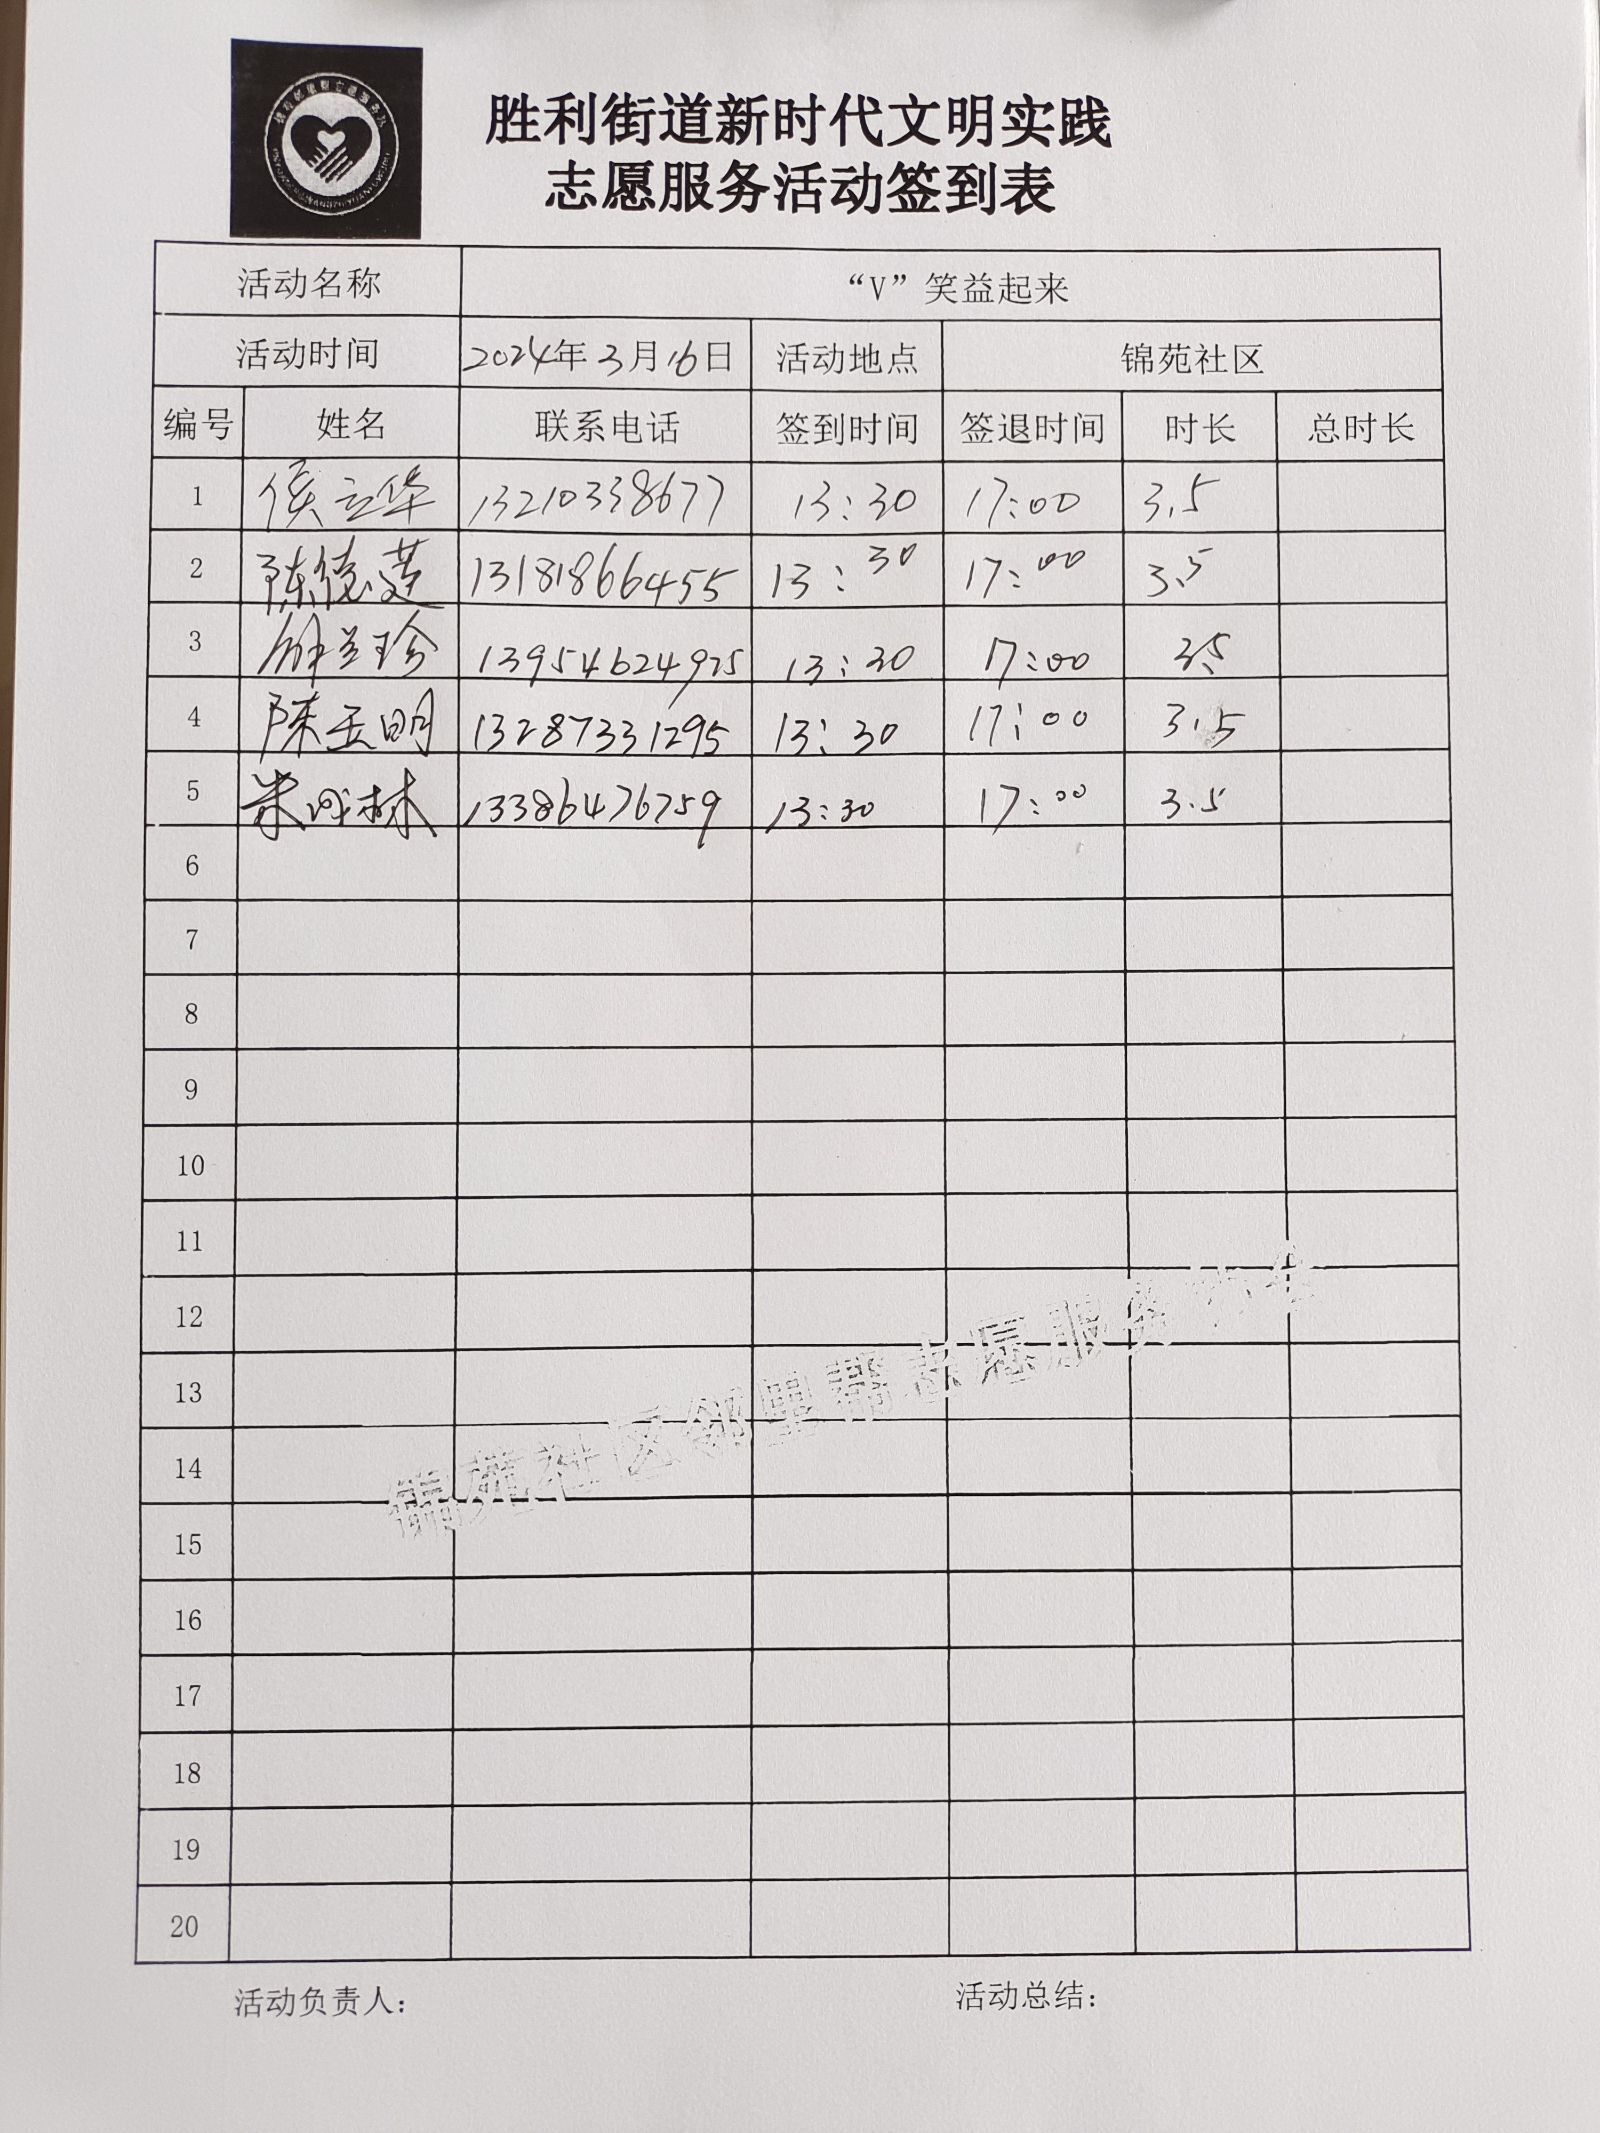 胜利街道新时代文明实践
志愿服务活动签到表
活动名称 “V”笑益起来
活动时间 2024年3月16日 活动地点 锦苑社区
编号 姓名 联系电话 签到时间 签退时间 时长 总时长
1 侯立华 13210338677 13:30 17:00 3.5
2 陈德英 13181866455 13:30 17:00 3.5
3 兰珍 13954624925 13:30 17:00 3.5
4 陈玉明 13287331295 13:30 17:00 3.5
5 林 13386476759 13:30 17:00 3.5
6
7
8
9
10
11
12
13
14
15
16
17
18
19
20
锦苑社区邻里帮志愿服务协会
活动负责人：
活动总结：